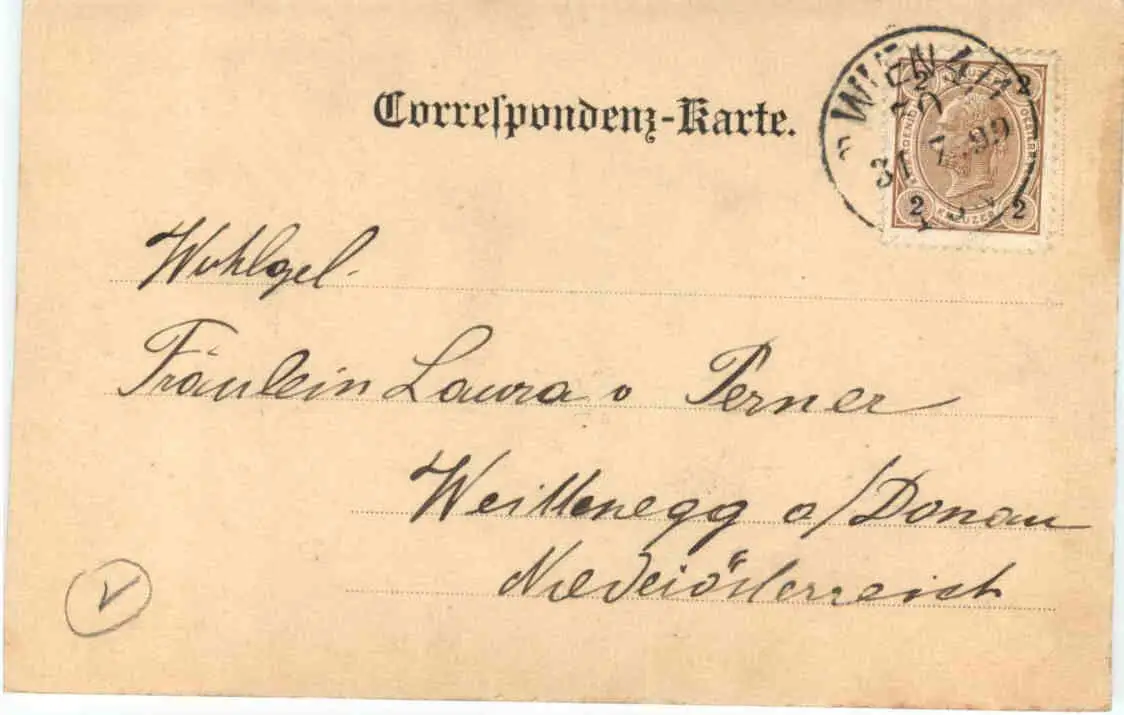 Correspondenz-Karte.
WIEN 4/1
31.7.99
2 KREUZER 2
Wohlgel.
Fräulein Laura v Perner
Weittenegg a/Donau
Niederösterreich